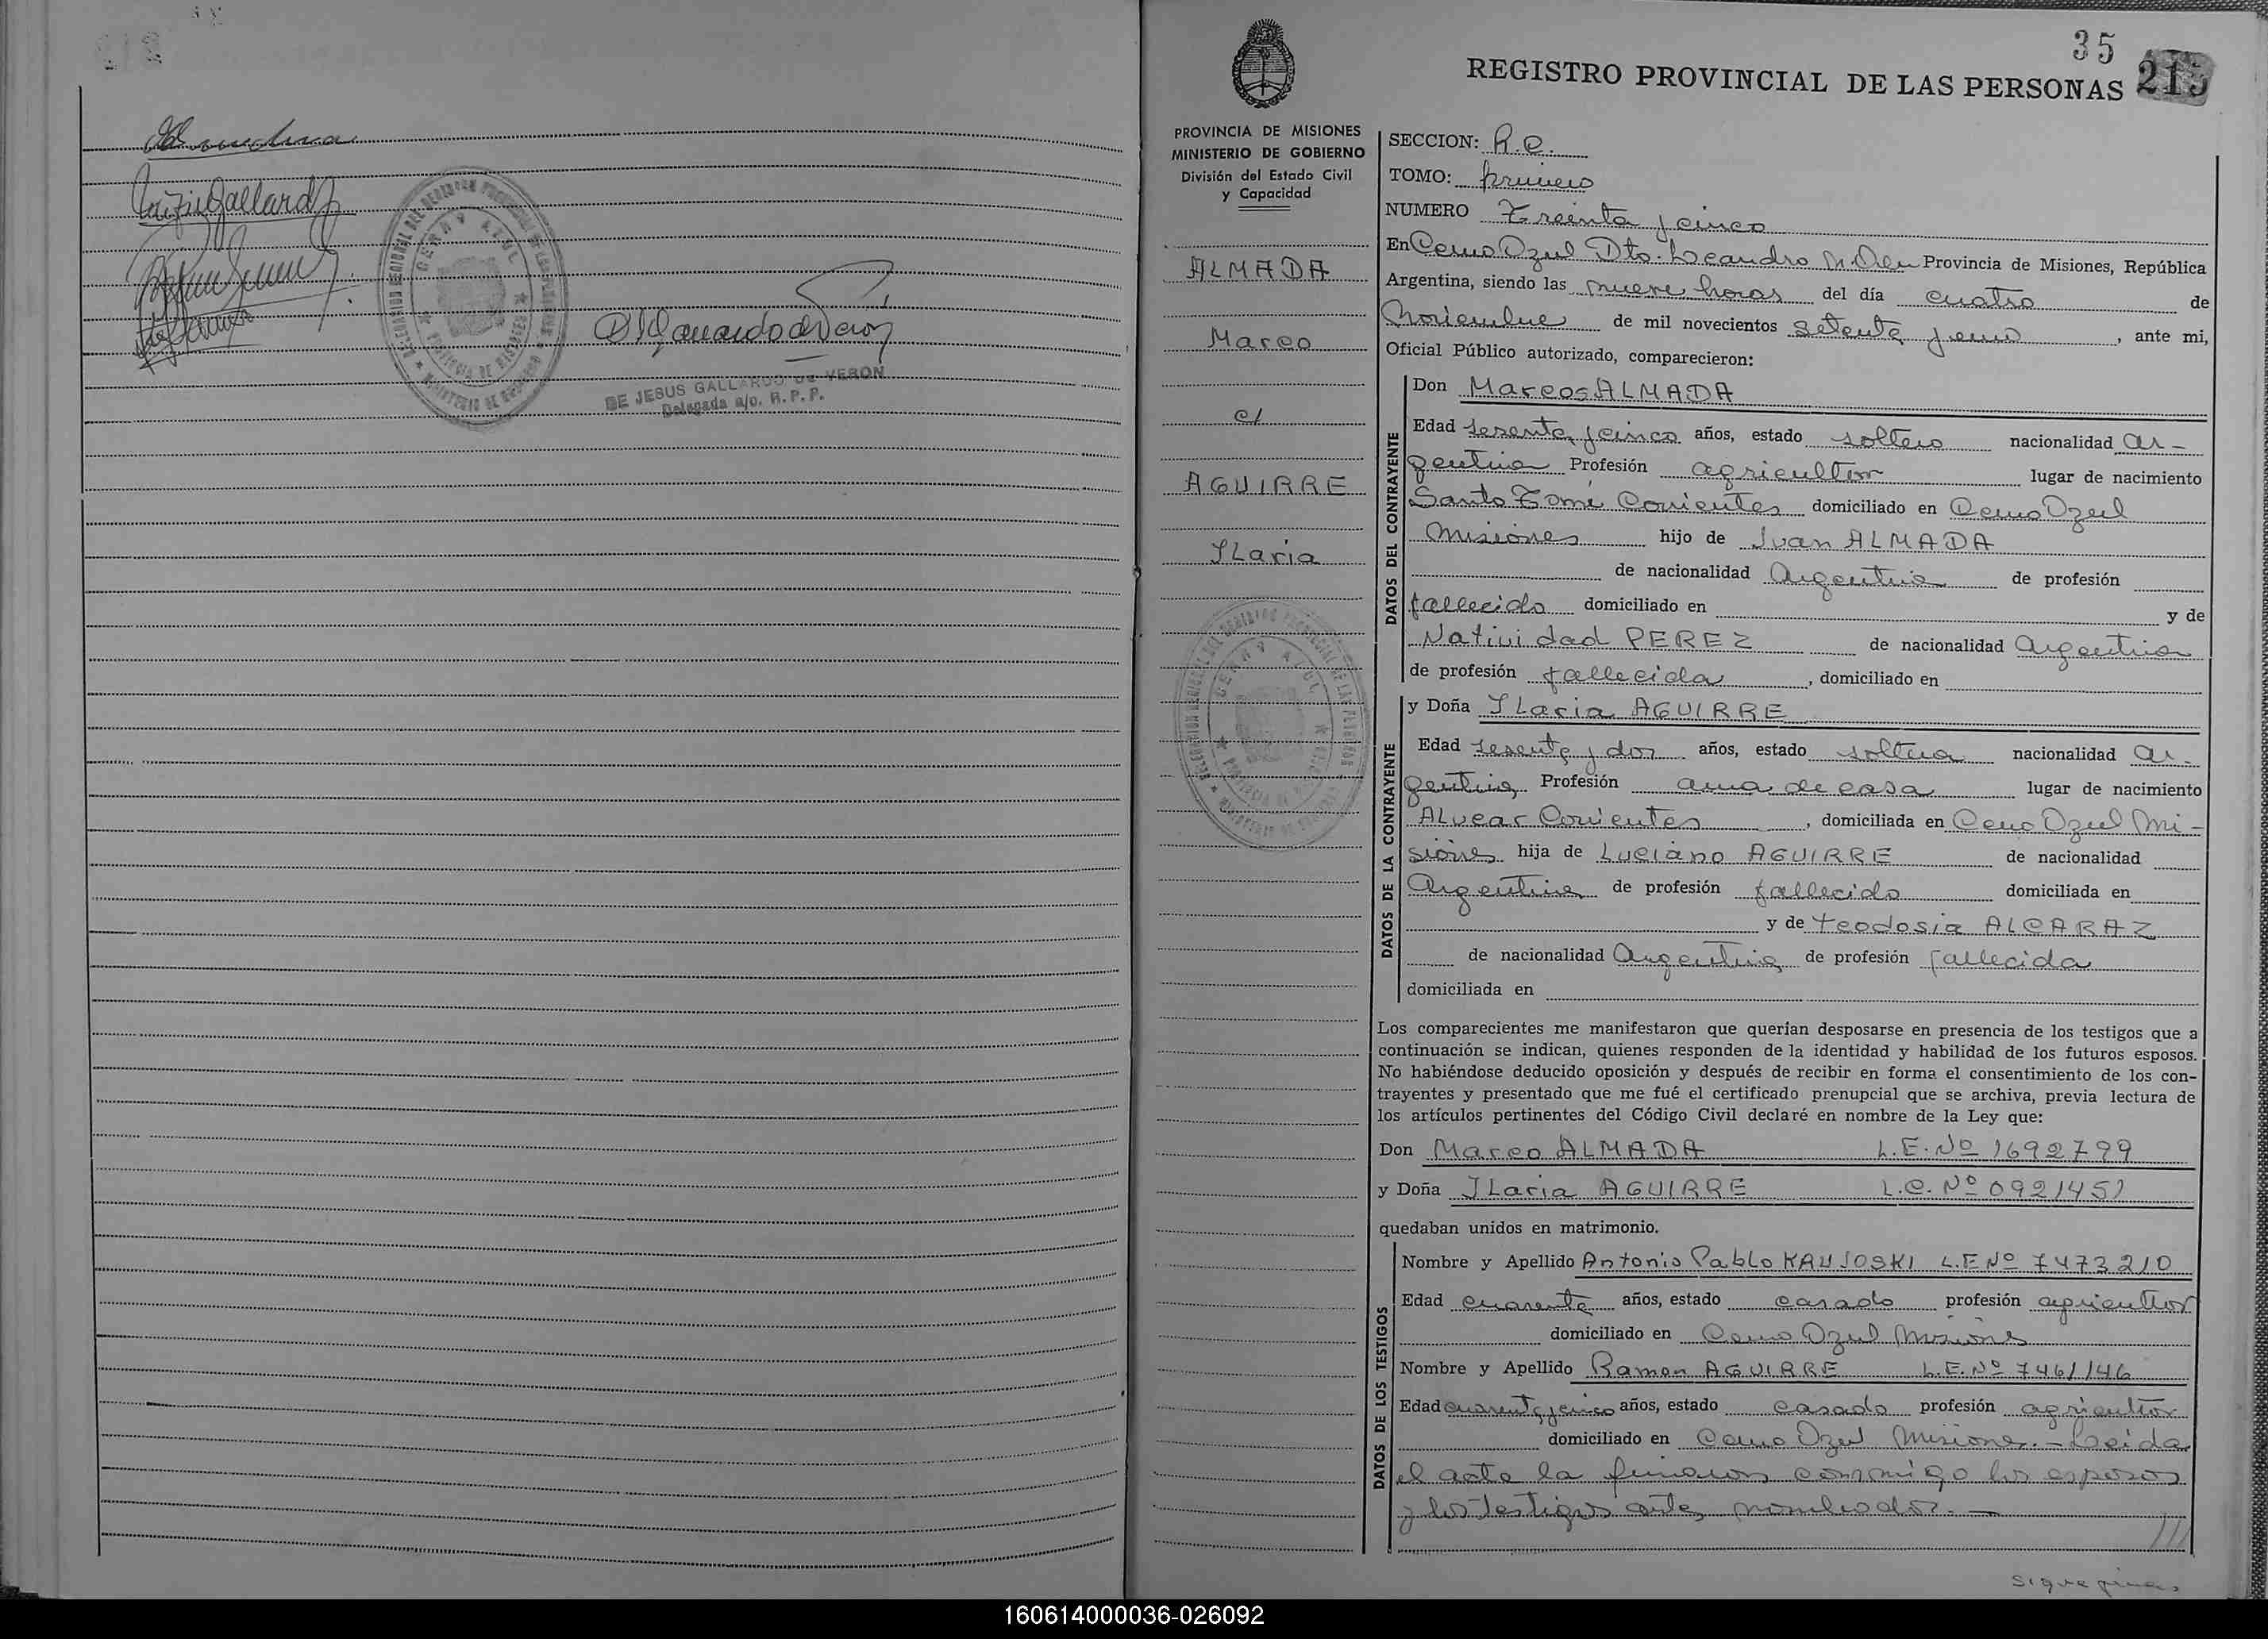 DE JESUS GALLARDO DE VERON
Delegada a/c. R. P. P.
35
REGISTRO PROVINCIAL DE LAS PERSONAS 215
PROVINCIA DE MISIONES
MINISTERIO DE GOBIERNO
División del Estado Civil
y Capacidad
ALMADA
Marco
c/
AGUIRRE
ILaria
SECCION: R.C.
TOMO: primero
NUMERO Treinta y cinco
En Cerro Azul Dto. Leandro N. Alem Provincia de Misiones, República
Argentina, siendo las nueve horas del día cuatro de
Noviembre de mil novecientos setenta y uno, ante mi,
Oficial Público autorizado, comparecieron:
DATOS DEL CONTRAYENTE
Don Marcos ALMADA
Edad sesenta y cinco años, estado soltero nacionalidad ar-
gentina Profesión agricultor lugar de nacimiento
Santo Tomé Corrientes domiciliado en Cerro Azul
Misiones hijo de Juan ALMADA
de nacionalidad Argentina de profesión
fallecido domiciliado en y de
Natividad PEREZ de nacionalidad Argentina
de profesión fallecida, domiciliado en
DATOS DE LA CONTRAYENTE
y Doña ILaria AGUIRRE
Edad sesenta y dos años, estado soltera nacionalidad ar-
gentina Profesión ama de casa lugar de nacimiento
ALvear Corrientes, domiciliada en Cerro Azul Mi-
siones hija de Luciano AGUIRRE de nacionalidad
Argentina de profesión fallecido domiciliada en
y de teodosia ALCARAZ
de nacionalidad Argentina de profesión fallecida
domiciliada en
Los comparecientes me manifestaron que querían desposarse en presencia de los testigos que a
continuación se indican, quienes responden de la identidad y habilidad de los futuros esposos.
No habiéndose deducido oposición y después de recibir en forma el consentimiento de los con-
trayentes y presentado que me fué el certificado prenupcial que se archiva, previa lectura de
los artículos pertinentes del Código Civil declaré en nombre de la Ley que:
Don Marco ALMADA L.E. Nº 1692799
y Doña ILaria AGUIRRE L.C. Nº 0921451
quedaban unidos en matrimonio.
DATOS DE LOS TESTIGOS
Nombre y Apellido Antonio Pablo KAUJOSKI L.E Nº 7473210
Edad cuarenta años, estado casado profesión agricultor
domiciliado en Cerro Azul Misiones
Nombre y Apellido Ramon AGUIRRE L.E. Nº 7461146
Edad cuarenta y cinco años, estado casado profesión agricultor
domiciliado en Cerro Azul Misiones. - Leida
el acta la firmaron conmigo los esposos
y los testigos antes nombrados. -
///
160614000036-026092